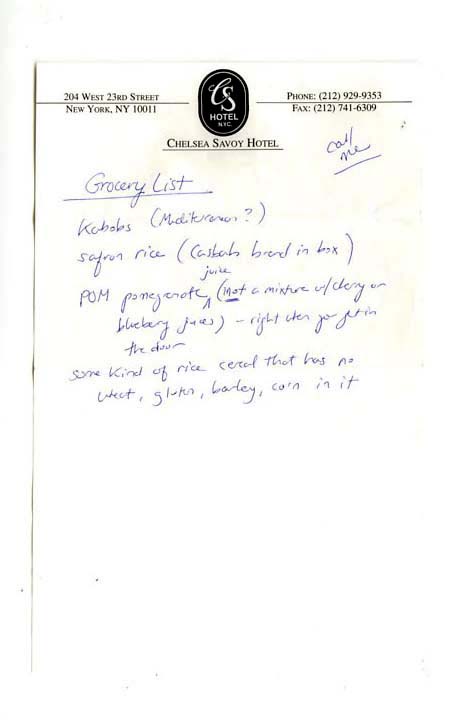 CS
HOTEL
N.Y.C.
204 WEST 23RD STREET
NEW YORK, NY 10011
PHONE: (212) 929-9353
FAX: (212) 741-6309
CHELSEA SAVOY HOTEL
call
me
Grocery List
Kabobs (Mediteranean?)
safron rice (Casbah brand in box)
juice
POM pomegranate ^ (Not a mixture w/cherry or
blueberry juices) - right when you get in
the door
some kind of rice cereal that has no
wheat, gluten, barley, corn in it